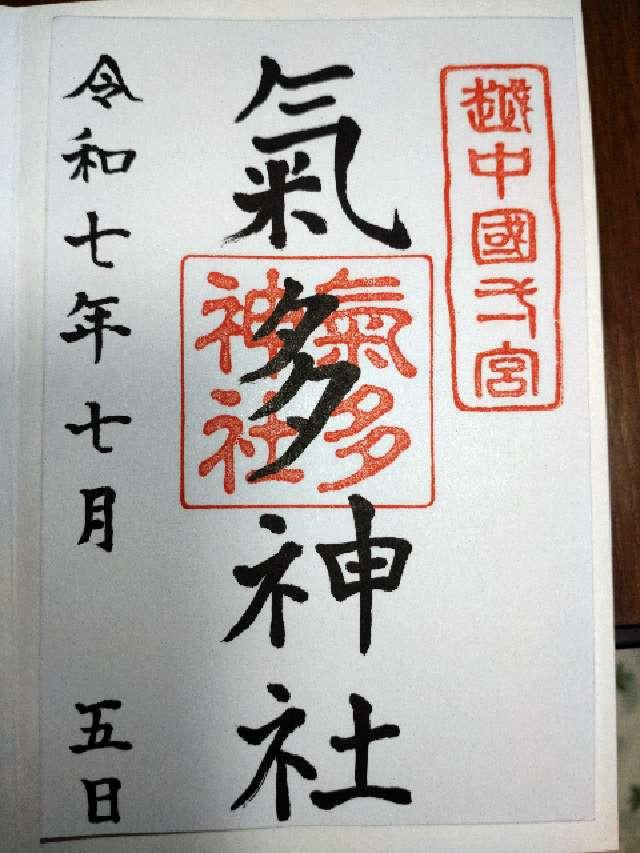 越中國一宮
氣多神社
氣多
神社
令和七年七月 五日